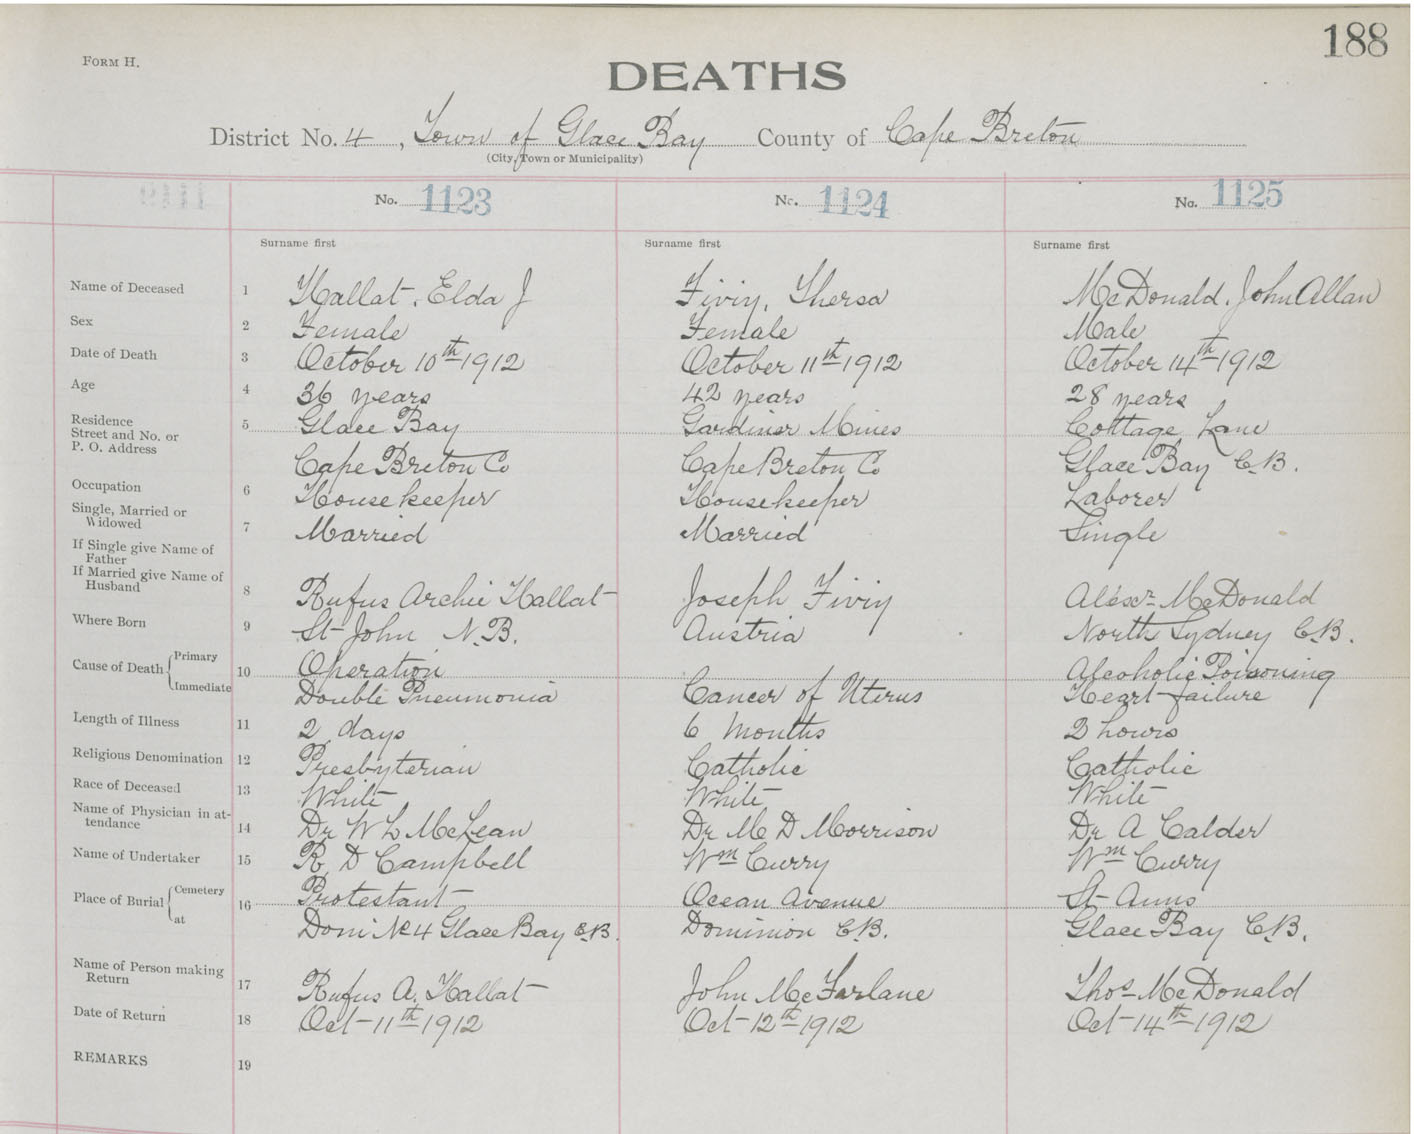 188
FORM H.
DEATHS
District No. 4, Town of Glace Bay County of Cape Breton
(City, Town or Municipality)
No. 1123 No. 1124 No. 1125
Surname first Surname first Surname first
Name of Deceased 1 Hallat, Elda J Fiviy, Thersa McDonald, John Allan
Sex 2 Female Female Male
Date of Death 3 October 10th 1912 October 11th 1912 October 14th 1912
Age 4 36 years 42 years 28 years
Residence 5 Glace Bay Gardiner Mines Cottage Lane
Street and No. or
P. O. Address Cape Breton Co Cape Breton Co Glace Bay C.B.
Occupation 6 Housekeeper Housekeeper Laborer
Single, Married or
Widowed 7 Married Married Single
If Single give Name of
Father
If Married give Name of
Husband 8 Rufus Archie Hallat Joseph Fiviy Alexr McDonald
Where Born 9 St John N.B. Austria North Sydney C.B.
Cause of Death Primary 10 Operation Alcoholic Poisoning
Immediate Double Pneumonia Cancer of Uterus Heart failure
Length of Illness 11 2 days 6 months 3 hours
Religious Denomination 12 Presbyterian Catholic Catholic
Race of Deceased 13 White White White
Name of Physician in at-
tendance 14 Dr W L McLean Dr M D Morrison Dr A Calder
Name of Undertaker 15 R. D Campbell Wm Curry Wm Curry
Place of Burial Cemetery 16 Protestant Ocean Avenue St Anns
at Dom No 4 Glace Bay C.B. Dominion C.B. Glace Bay C.B.
Name of Person making
Return 17 Rufus A. Hallat John McFarlane Thos McDonald
Date of Return 18 Oct 11th 1912 Oct 12th 1912 Oct 14th 1912
REMARKS 19